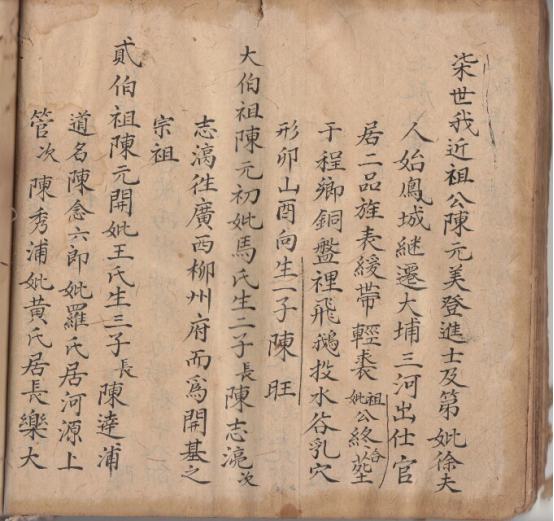 柒世我近祖公陳元美登進士及第妣徐夫
人始鳳城継遷大埔三河出仕官
居二品旌表緩帶輕裘祖妣公終合塟
于程鄉銅盤裡飛鵝投水谷乳穴
形卯山酉向生一子陳旺
大伯祖陳元初妣馬氏生二子長陳志滬次
志漓徃廣西柳州府而爲開基之
宗祖
貳伯祖陳元開妣王氏生三子長陳達浦
道名陳念六郎妣羅氏居河源上
管次陳秀浦妣黃氏居長樂大